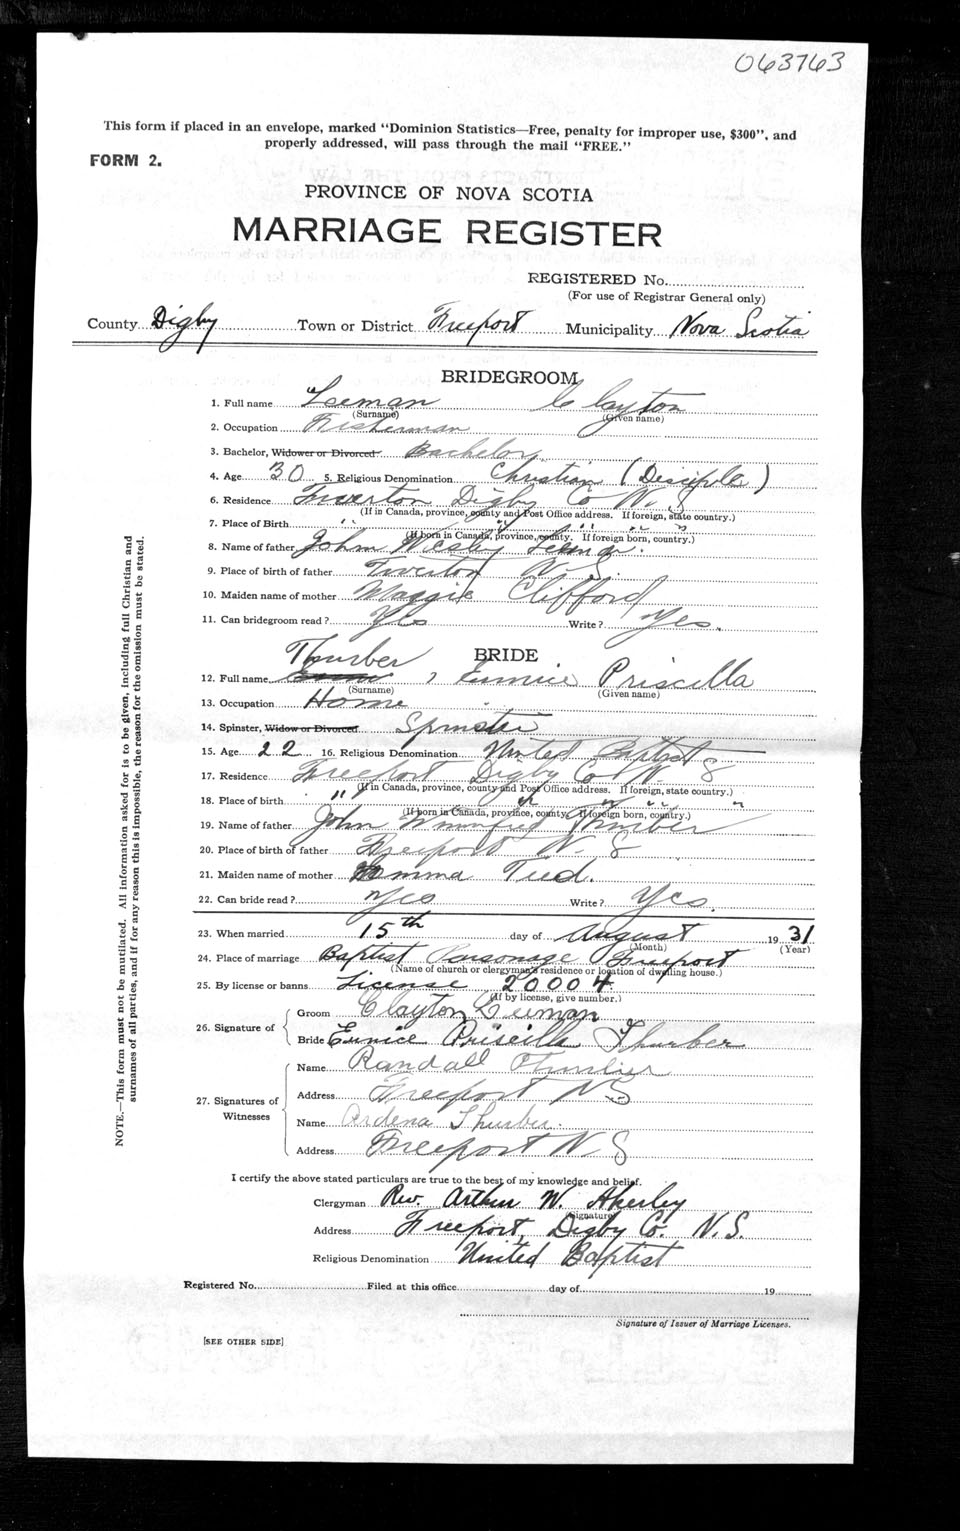 063763
This form if placed in an envelope, marked "Dominion Statistics—Free, penalty for improper use, $300", and
properly addressed, will pass through the mail "FREE."
FORM 2.
PROVINCE OF NOVA SCOTIA
MARRIAGE REGISTER
REGISTERED No.
(For use of Registrar General only)
County Digby Town or District Freeport Municipality Nova Scotia
BRIDEGROOM
1. Full name Leeman Clayton
(Surname) (Given name)
2. Occupation Fisherman
3. Bachelor, Widower or Divorced Bachelor
4. Age 30 5. Religious Denomination Christian (Disciple)
6. Residence Tiverton Digby Co N. S
(If in Canada, province, county and Post Office address. If foreign, state country.)
7. Place of Birth " " " " " "
(If born in Canada, province, county. If foreign born, country.)
8. Name of father John Wesley Leeman.
9. Place of birth of father Tiverton N. S.
10. Maiden name of mother Maggie Clifford
11. Can bridegroom read? Yes Write? Yes.
Thurber BRIDE
12. Full name , Eunice Priscilla
(Surname) (Given name)
13. Occupation Home
14. Spinster, Widow or Divorced Spinster
15. Age 22 16. Religious Denomination United Baptist
17. Residence Freeport Digby Co N. S
(If in Canada, province, county and Post Office address. If foreign, state country.)
18. Place of birth " " " " "
(If born in Canada, province, county. If foreign born, country.)
19. Name of father John Thurber
20. Place of birth of father Freeport N. S
21. Maiden name of mother Emma Teed.
22. Can bride read? Yes Write? Yes.
23. When married 15th day of August 1931
(Month) (Year)
24. Place of marriage Baptist Parsonage Freeport
(Name of church or clergyman's residence or location of dwelling house.)
25. By license or banns License 20004
(If by license, give number.)
26. Signature of Groom Clayton Leeman
Bride Eunice Priscilla Thurber
27. Signatures of Witnesses Name Randall Thurber
Address Freeport N S
Name Ardena Thurber.
Address Freeport N. S
I certify the above stated particulars are true to the best of my knowledge and belief.
Clergyman Rev. Arthur W. Akerley
(Signature)
Address Freeport, Digby Co. N. S.
Religious Denomination United Baptist
Registered No. Filed at this office day of 19
Signature of Issuer of Marriage Licenses.
[SEE OTHER SIDE]
NOTE.—This form must not be mutilated. All information asked for is to be given, including full Christian and
surnames of all parties, and if for any reason this is impossible, the reason for the omission must be stated.